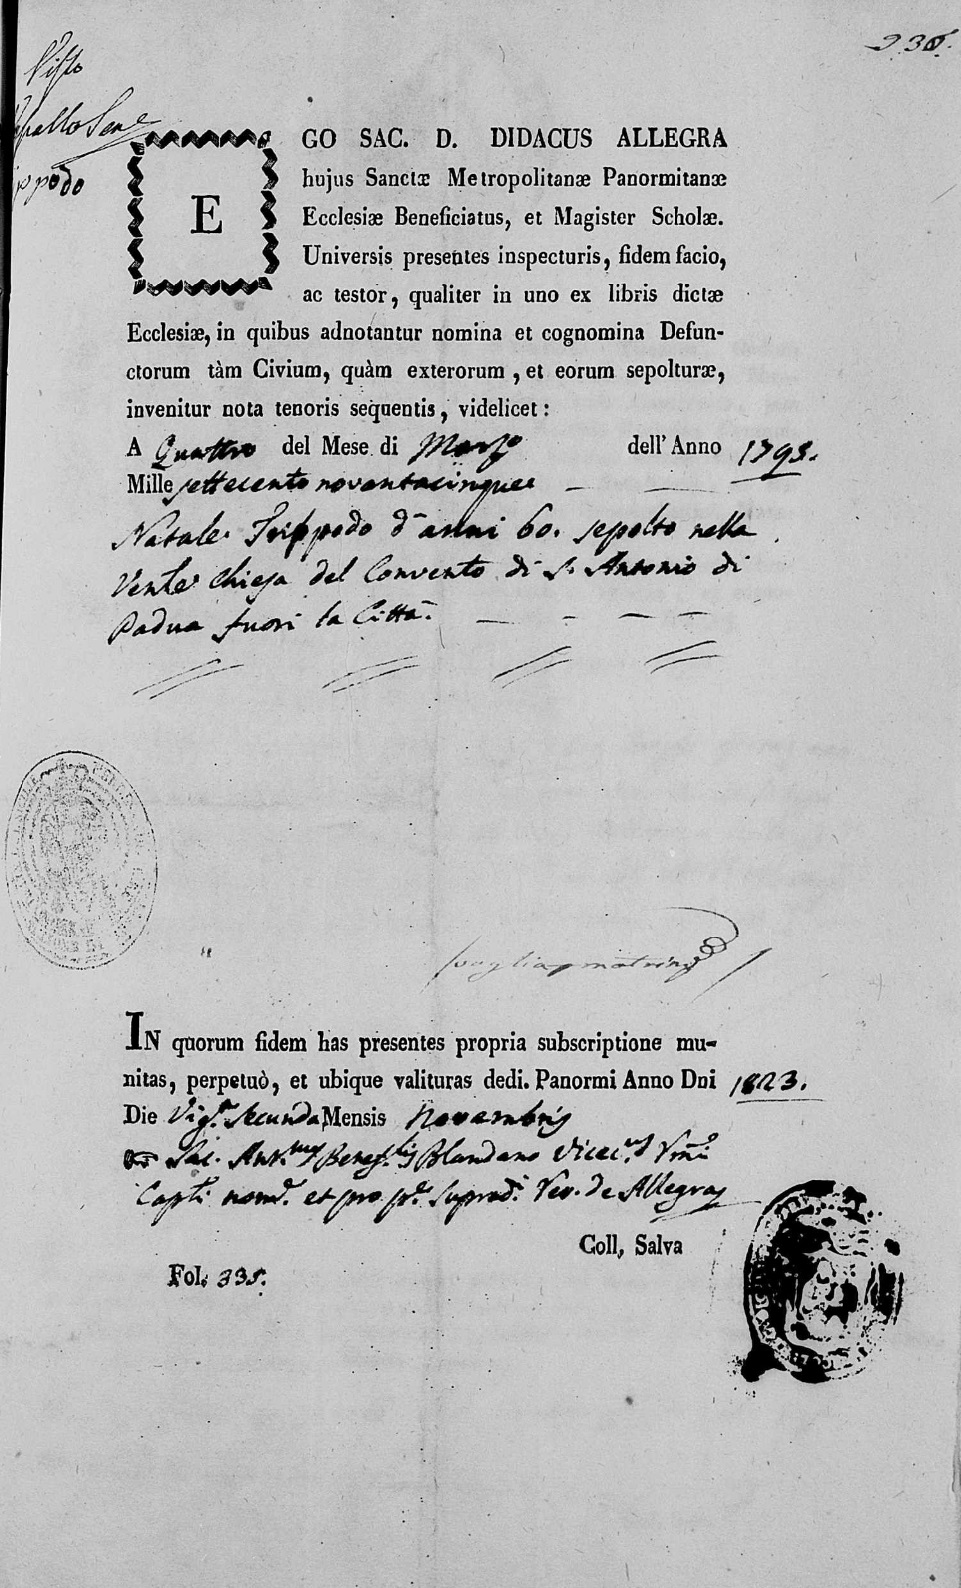 236.
Visto
GO SAC. D. DIDACUS ALLEGRA
E
hujus Sanctæ Metropolitanæ Panormitanæ
Ecclesiæ Beneficiatus, et Magister Scholæ.
Universis presentes inspecturis, fidem facio,
ac testor, qualiter in uno ex libris dictæ
Ecclesiæ, in quibus adnotantur nomina et cognomina Defun-
ctorum tàm Civium, quàm exterorum, et eorum sepolturæ,
invenitur nota tenoris sequentis, videlicet:
A Quattro del Mese di Marzo dell' Anno 1795.
Mille settecento novantacinque
Natale Trippodo d'anni 60. sepolto nella
Venle Chiesa del Convento di S. Antonio di
Padua fuori la Città.
IN quorum fidem has presentes propria subscriptione mu-
nitas, perpetuò, et ubique valituras dedi. Panormi Anno Dni 1823.
Die Vig.ᵃ Secunda Mensis Novembris
Sac. Benef. Blandano
nom. et pro Suprad. Rev. de Allegra
Coll, Salva
Fol. 335.